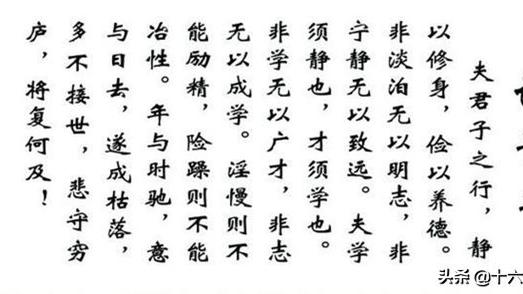 夫君子之行，静
以修身，俭以养德。
非淡泊无以明志，非
宁静无以致远。夫学
须静也，才须学也。
非学无以广才，非志
无以成学。淫慢则不
能励精，险躁则不能
冶性。年与时驰，意
与日去，遂成枯落，
多不接世，悲守穷
庐，将复何及！
头条 @十六